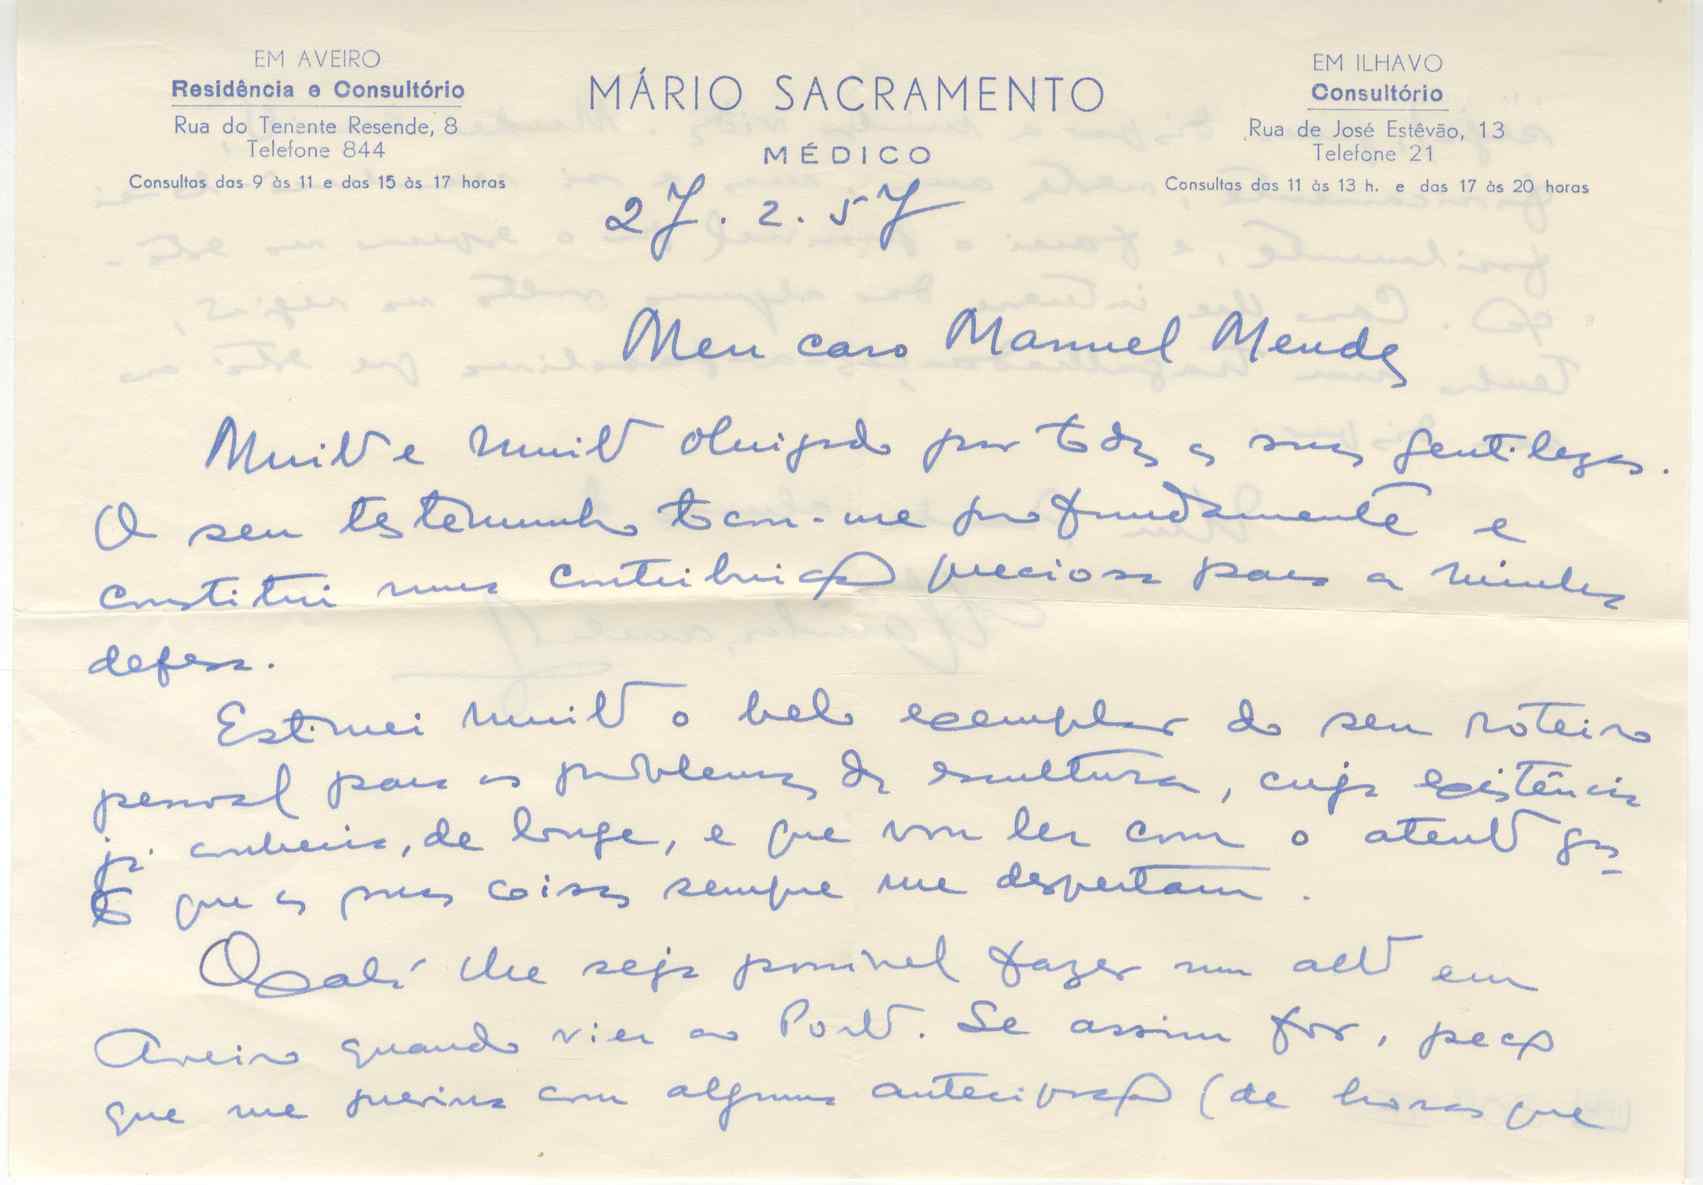 EM AVEIRO
Residência e Consultório
Rua do Tenente Resende, 8
Telefone 844
Consultas das 9 às 11 e das 15 às 17 horas
MÁRIO SACRAMENTO
MÉDICO
EM ILHAVO
Consultório
Rua de José Estêvão, 13
Telefone 21
Consultas das 11 às 13 h. e das 17 às 20 horas
27.2.57
Meu caro Manuel Mendes
Muito e muito obrigado por todas as suas gentilezas.
O seu testemunho tocou-me profundamente e
constitui uma contribuição preciosa para a minha
defesa.
Estimei muito o belo exemplar do seu roteiro
pessoal para os problemas da escultura, cuja existência
já conhecia, de longe, e que vou ler com o atento gos-
to que as suas coisas sempre me despertam.
Oxalá lhe seja possível fazer um alto em
Aveiro quando vier ao Porto. Se assim for, peço
que me previna com alguma antecipação (de horas que